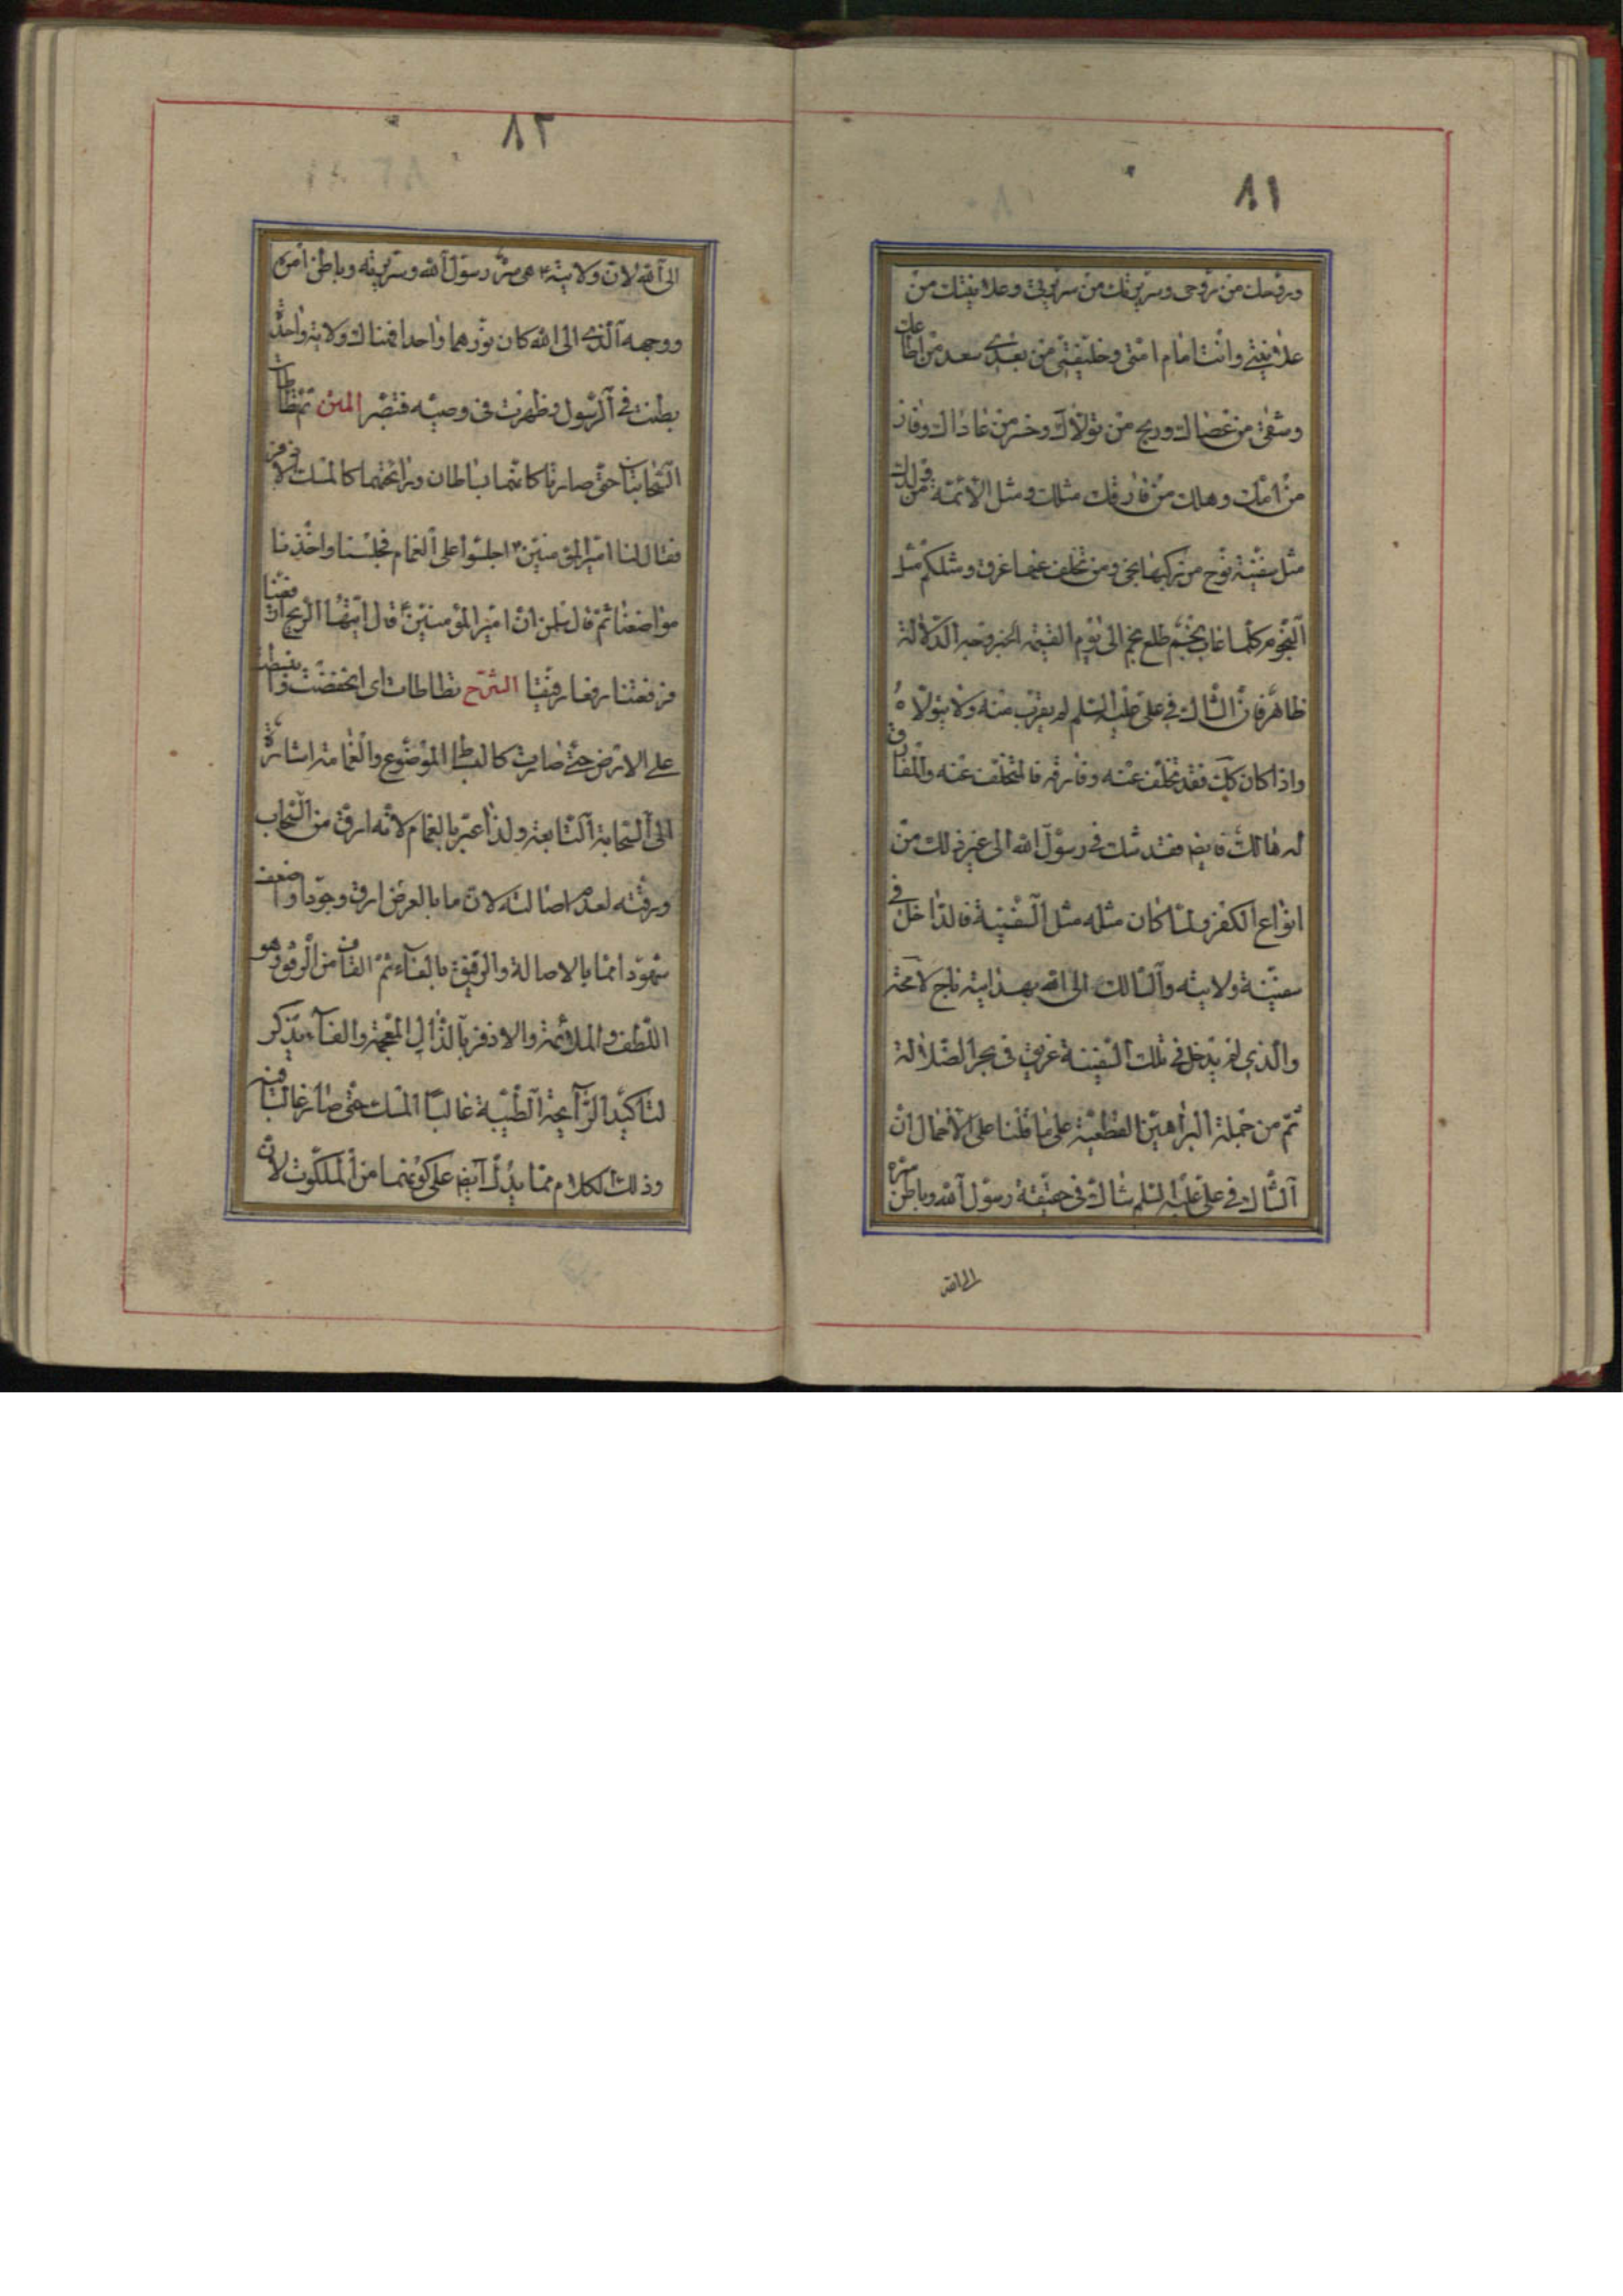 ٨١
وروحك من روحي وسريرتك من سريرتي وعلانيتك من
علانيتي وانت امام امتي وخليفتي من بعدي سعد من اطاعك
وشقي من عصاك وربح من تولاك وخسر من عاداك وفاز
من لزمك وهلك من فارقك مثلك ومثل الائمة من ولدك
مثل سفينة نوح من ركبها نجى ومن تخلف عنها غرق ومثلكم مثل
النجوم كلما غاب نجم طلع نجم الى يوم القيمة الخبر وجه الدلالة
ظاهر فان الشاك في علي عليه السلم لم يقرب منه ولا يتولاه
واذا كان كك فقد تخلف عنه وفارقه فالمتخلف عنه والمفارق
له هالك وايضا فقد شك في رسول الله الى غير ذلك من
انواع الكفر ولما كان مثله مثل السفينة فالداخل في
سفينة ولايته والسالك الى الله بهدايته ناج لا محة
والذي لم يدخل في تلك السفينة غريق في بحر الضلالة
ثم من جملة البراهين القطعية على ما قلنا على الاجمال ان
الشاك في علي عليه السلم شاك في حقيقة رسول الله وباطن سره
الى الله
٨٢
الى الله لان ولايته ع هي سر رسول الله وسريرته وباطن امره
ووجهه الذي الى الله كان نورهما واحدا فهناك ولاية واحدة
بطنت في الرسول وظهرت في وصيه فتبصر المتن ثم تطاطات
السحابتان حتى صارتا كانهما بساطان ورائحتهما كالمسك الاذفر
فقال لنا امير المؤمنين ع اجلسوا على الغمام فجلسنا واخذنا
مواضعنا ثم قال سلمن ان امير المؤمنين ع قال ايتها الريح ارفعينا
فرفعتنا رفعا رفيقا الشرح تطاطات اي انخفضت وانبسطت
على الارض حتى صارت كالبساط الموضوع والغمامة اشارة
الى السحابة التابعة ولذا عبر بالغمام لانه ارق من السحاب
ورقته لعدم اصالته لان ما بالعرض ارق وجودا واضعف
شهودا مما بالاصالة والرفيق بالفاء ثم القاف من الرفق وهو
اللطف والملائمة والاذفر بالذال المعجمة والفاء يذكر
لتاكيد الرائحة الطيبة غالبا المسك حتى صار غالبا فيه
وذلك الكلام مما يدل ايضا على كونهما من الملكوت لان